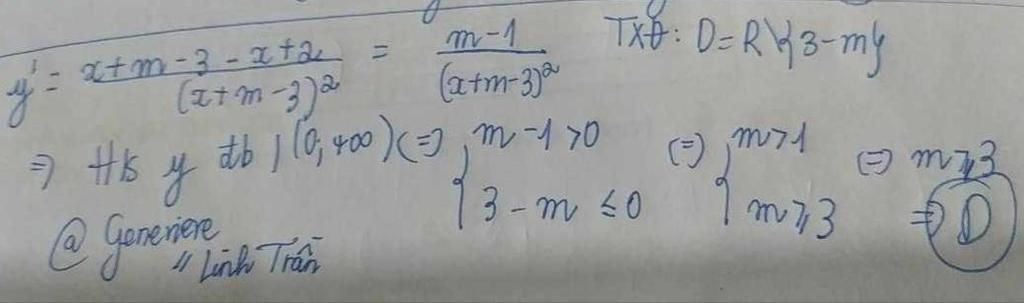 y' = \frac{x+m-3-x+2}{(x+m-3)^2} = \frac{m-1}{(x+m-3)^2} TXĐ: D=R\{3-m}
=> Hs y đb / (0,+∞) <=> { m-1>0 ; 3-m ≤ 0 <=> { m>1 ; m⩾3 <=> m⩾3
=> D
@ Generiere
" Linh Trần